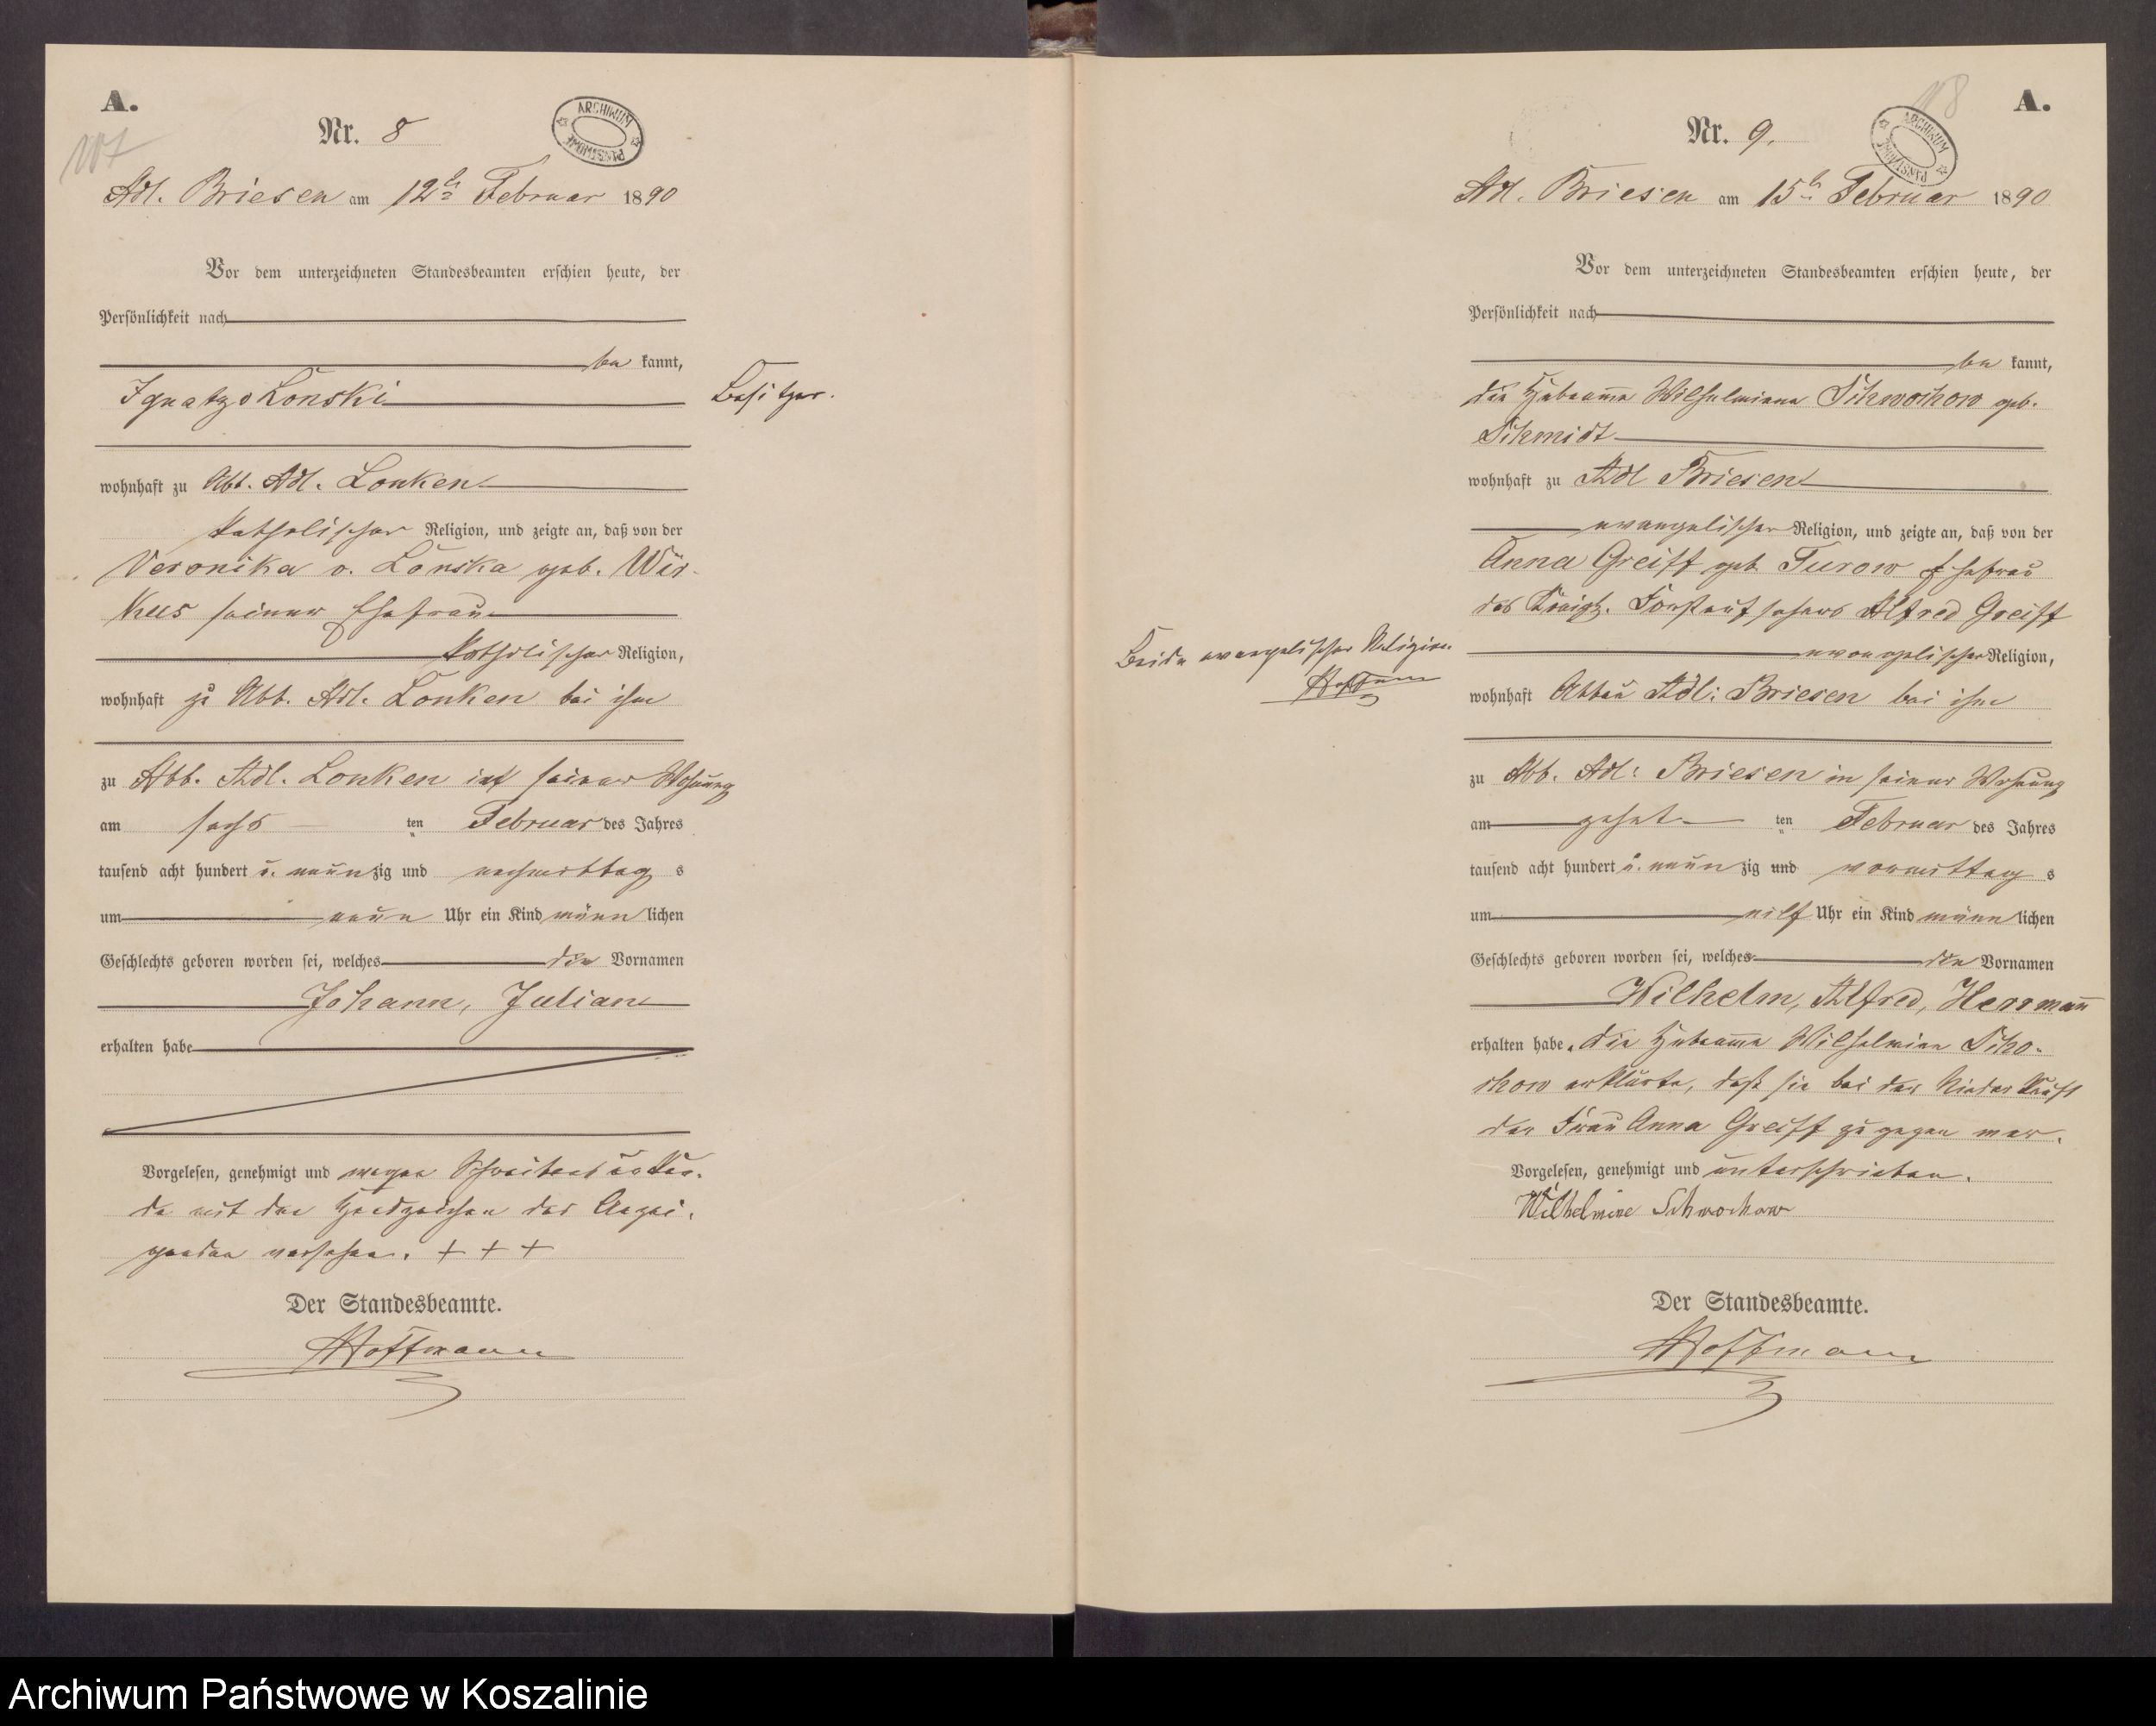 A.
107
Nr. 8
ARCHIWUM PAŃSTWOWE
Adl. Briesen am 12ten Februar 1890
Vor dem unterzeichneten Standesbeamten erschien heute, der
Persönlichkeit nach
be kannt,
Lonski
Besitzer.
wohnhaft zu Abb. Adl. Lonken
katholischer Religion, und zeigte an, daß von der
Veronika v. Lonska geb. Wir-
kus seiner Ehefrau
katholischer Religion,
wohnhaft zu Abb. Adl. Lonken bei ihm
zu Abb. Adl. Lonken in seiner Wohnung
am sechs ten Februar des Jahres
tausend acht hundert u. neunzig und nachmittag s
um neun Uhr ein Kind männ lichen
Geschlechts geboren worden sei, welches die Vornamen
Johann, Julian
erhalten habe
Vorgelesen, genehmigt und wegen Schreibensunkun-
de mit den Handzeichen des Anzei-
genden versehen. + + +
Der Standesbeamte.
Hoffmann
A.
118
Nr. 9.
ARCHIWUM PAŃSTWOWE
Adl. Briesen am 15ten Februar 1890
Vor dem unterzeichneten Standesbeamten erschien heute, der
Persönlichkeit nach
be kannt,
die Hebamme Wilhelmine Schwochow geb.
Schmidt
wohnhaft zu Adl Briesen
evangelischer Religion, und zeigte an, daß von der
Anna Greiff geb Turow Ehefrau
des Königl. Forstaufsehers Alfred Greiff
Beide evangelischer Religion.
Hoffmann
evangelischer Religion,
wohnhaft Abbau Adl: Briesen bei ihm
zu Abb. Adl: Briesen in seiner Wohnung
am zehnt ten Februar des Jahres
tausend acht hundert u. neun zig und vormittag s
um elf Uhr ein Kind männ lichen
Geschlechts geboren worden sei, welches die Vornamen
Wilhelm, Alfred, Herrmann
erhalten habe. Die Hebamme Wilhelmine Scho-
chow erklärte, daß sie bei der Niederkunft
der Frau Anna Greiff zugegen war.
Vorgelesen, genehmigt und unterschrieben.
Wilhelmine Schwochow
Der Standesbeamte.
Hoffmann
Archiwum Państwowe w Koszalinie